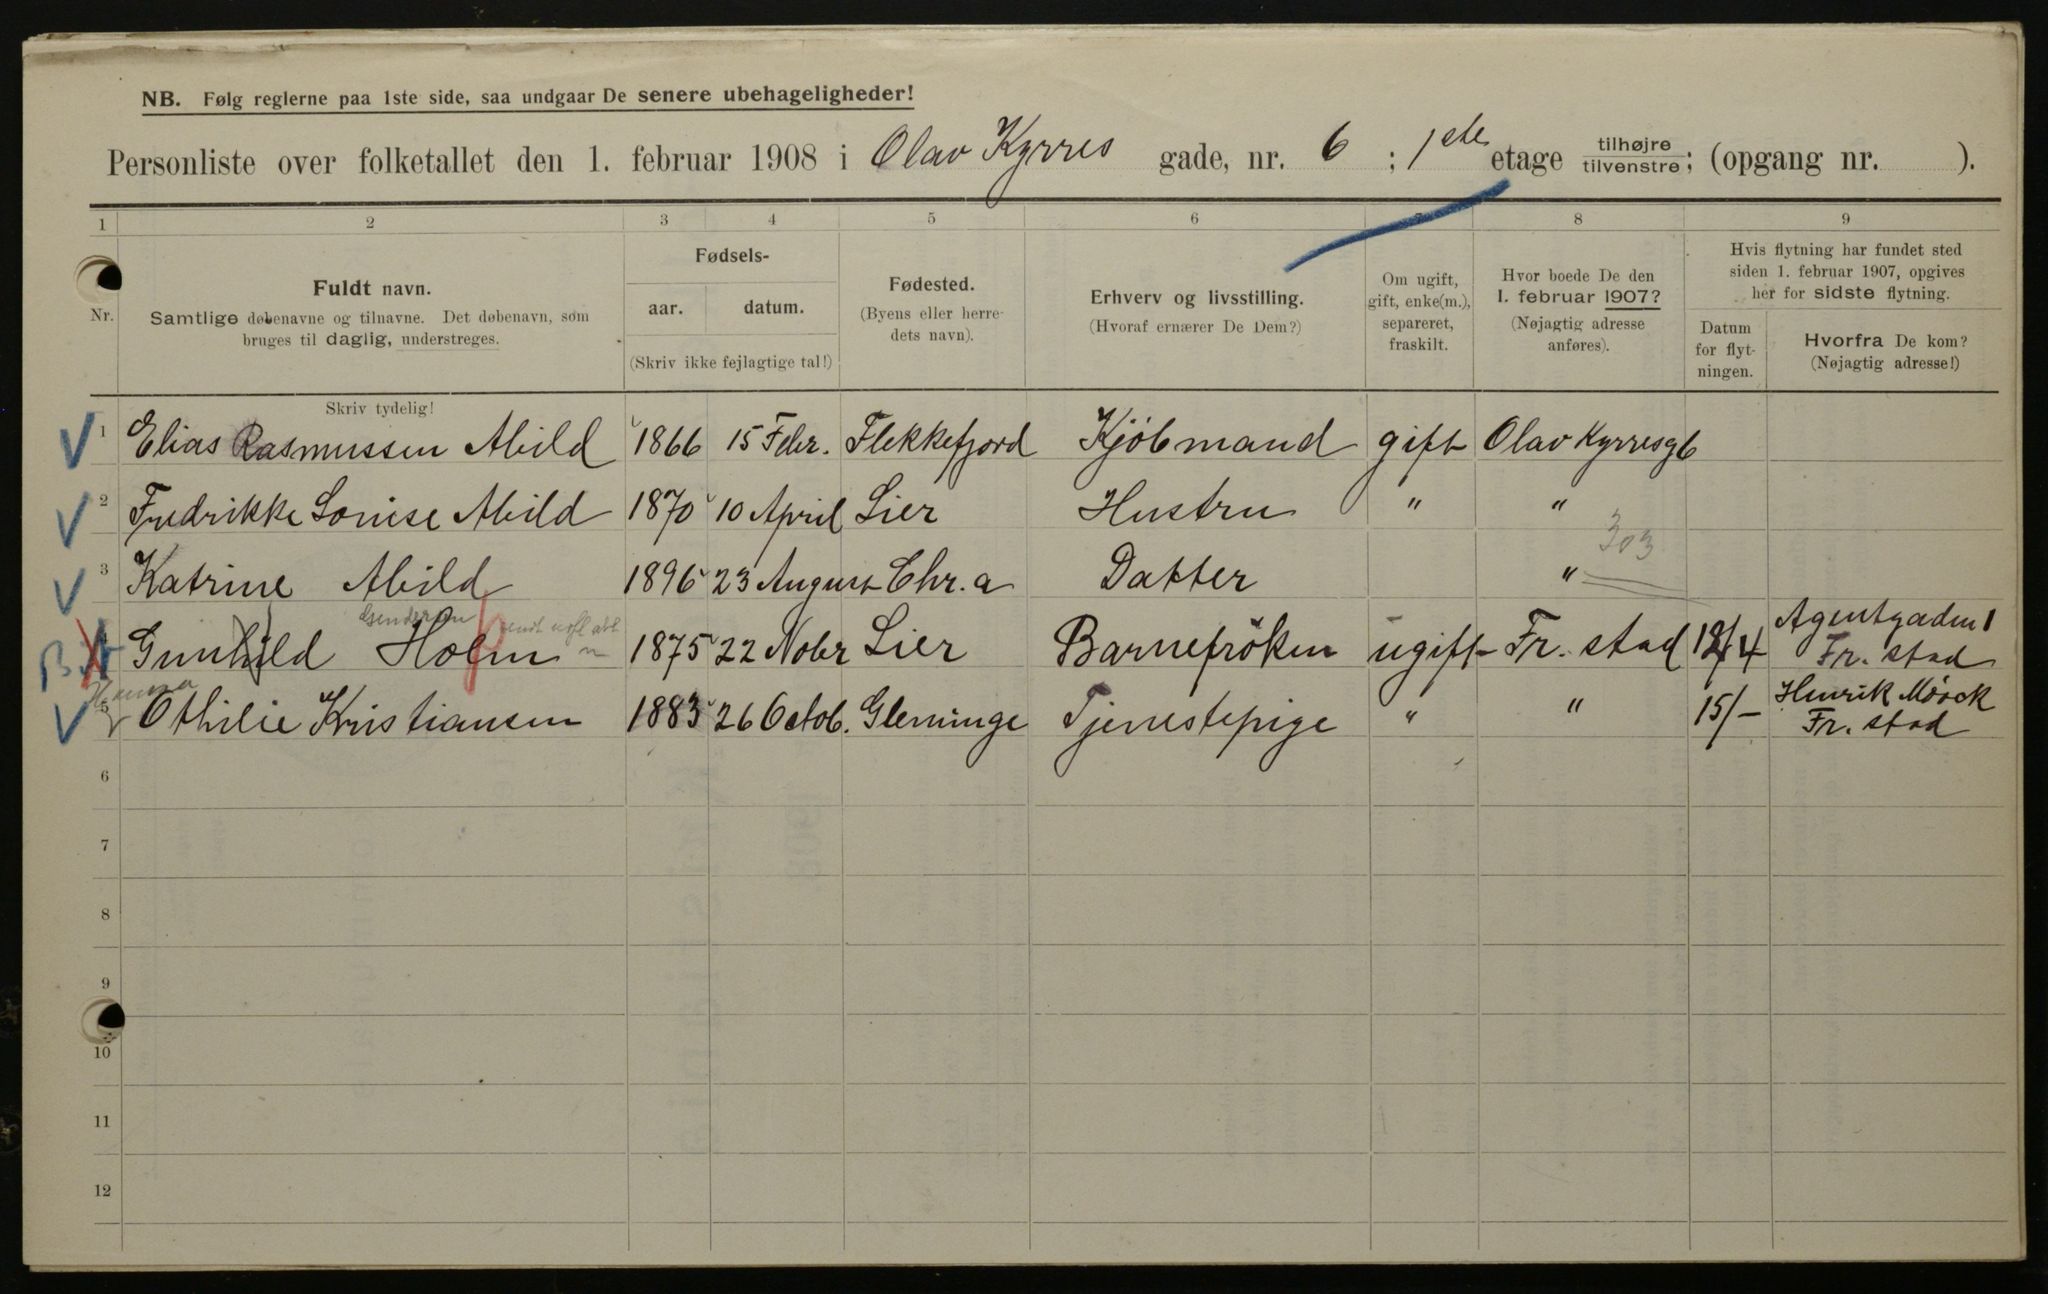 NB. Følg reglerne paa 1ste side, saa undgaar De senere ubehageligheder!
Personliste over folketallet den 1. februar 1908 i Olav Kyrres gade, nr. 6 ; 1ste etage tilhøjre tilvenstre; (opgang nr. ).
1 2 3 4 5 6 7 8 9
Nr.
Fuldt navn.
Samtlige døbenavne og tilnavne. Det døbenavn, som
bruges til daglig, understreges.
Skriv tydelig!
Fødsels-
aar. datum.
(Skriv ikke fejlagtige tal!)
Fødested.
(Byens eller herre-
dets navn).
Erhverv og livsstilling.
(Hvoraf ernærer De Dem?)
Om ugift,
gift, enke(m.),
separeret,
fraskilt.
Hvor boede De den
1. februar 1907?
(Nøjagtig adresse
anføres).
Hvis flytning har fundet sted
siden 1. februar 1907, opgives
her for sidste flytning.
Datum
for flyt-
ningen.
Hvorfra De kom?
(Nøjagtig adresse!)
1 Elias Rasmussen Abild 1866 15 Febr. Flekkefjord Kjöbmand gift Olav Kyrresg 6
2 Fredrikke Louise Abild 1870 10 April Lier Hustru " "
303
3 Katrine Abild 1896 23 August Chr.a Datter "
Gunhild Holm 1875 22 Nobr Lier Barnefröken ugift Fr. stad 12/4 Agentgaden 1
Fr. stad
Hanna
5 Othilie Kristiansen 1883 26 Octob. Gleminge Tjenestepige " " 15/- Henrik Mörck
Fr. stad
6
7
8
9
10
11
12